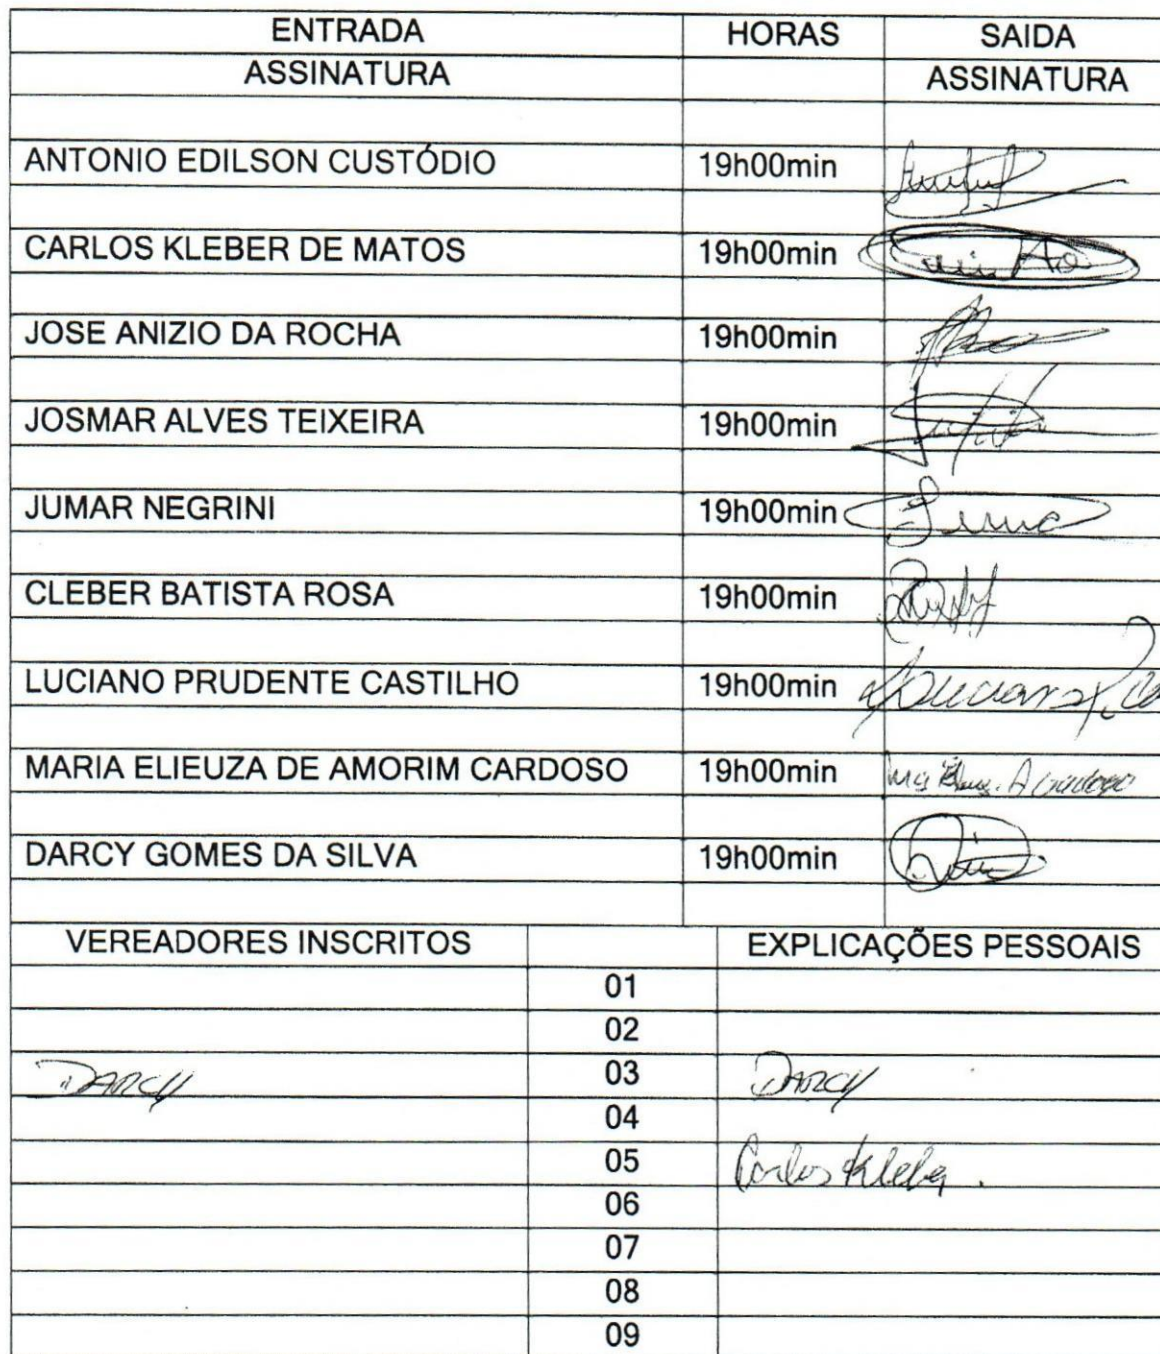 ENTRADA HORAS SAIDA
ASSINATURA ASSINATURA
ANTONIO EDILSON CUSTÓDIO 19h00min
CARLOS KLEBER DE MATOS 19h00min
JOSE ANIZIO DA ROCHA 19h00min
JOSMAR ALVES TEIXEIRA 19h00min
JUMAR NEGRINI 19h00min
CLEBER BATISTA ROSA 19h00min
LUCIANO PRUDENTE CASTILHO 19h00min
MARIA ELIEUZA DE AMORIM CARDOSO 19h00min
DARCY GOMES DA SILVA 19h00min
VEREADORES INSCRITOS EXPLICAÇÕES PESSOAIS
01
02
DARCY 03 DARCY
04
05 Carlos Kleber.
06
07
08
09